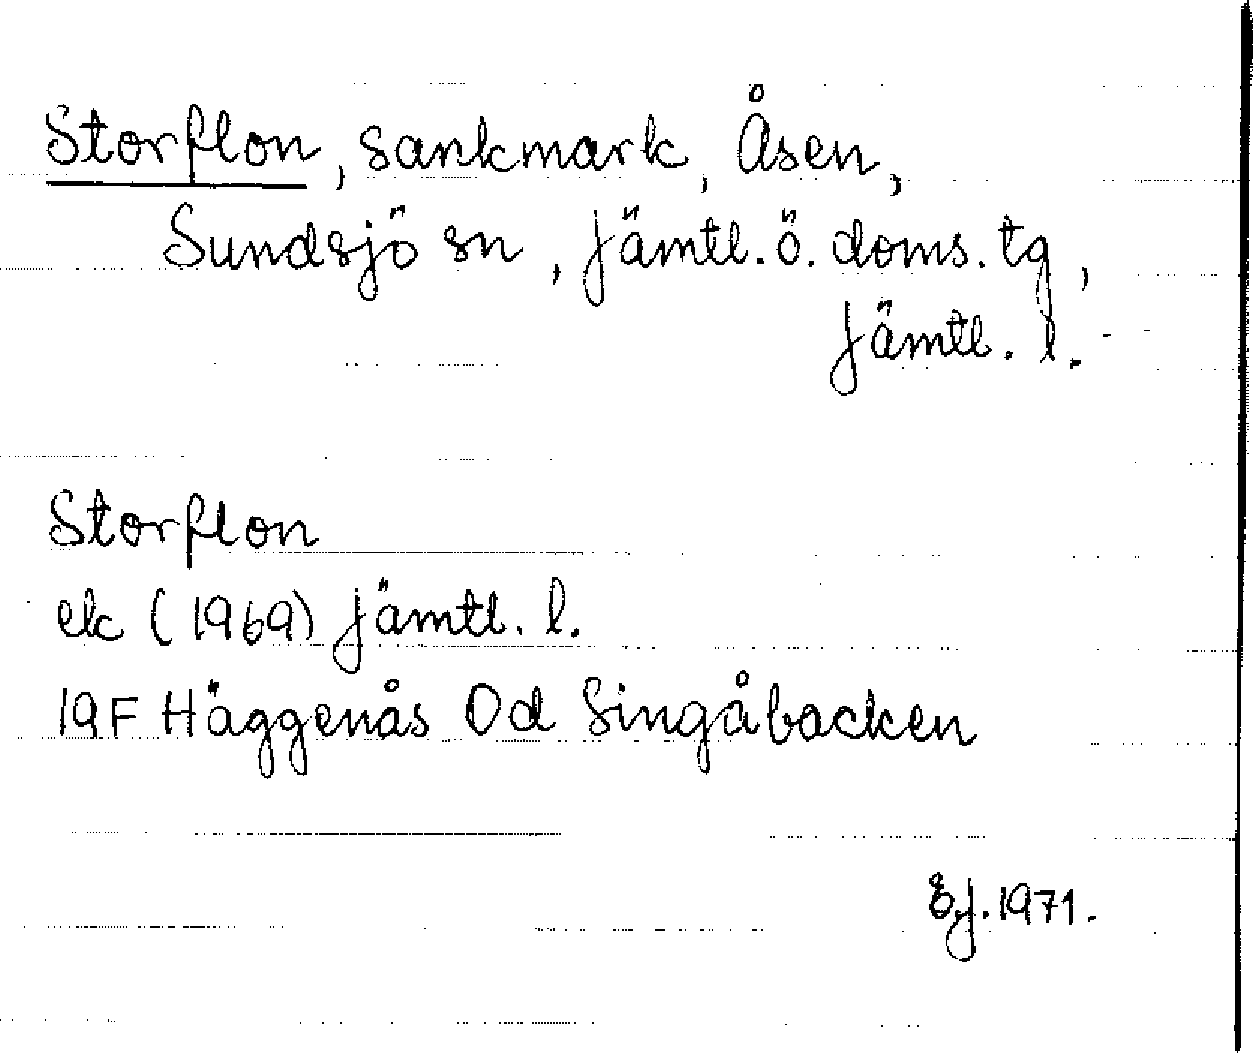 Storflon, sankmark, Åsen,
Sundsjö sn, Jämtl. ö. doms. tg,
Jämtl. l.
Storflon
ek (1969) Jämtl. l.
19F Häggenås 0d Singåbacken
E.J. 1971.